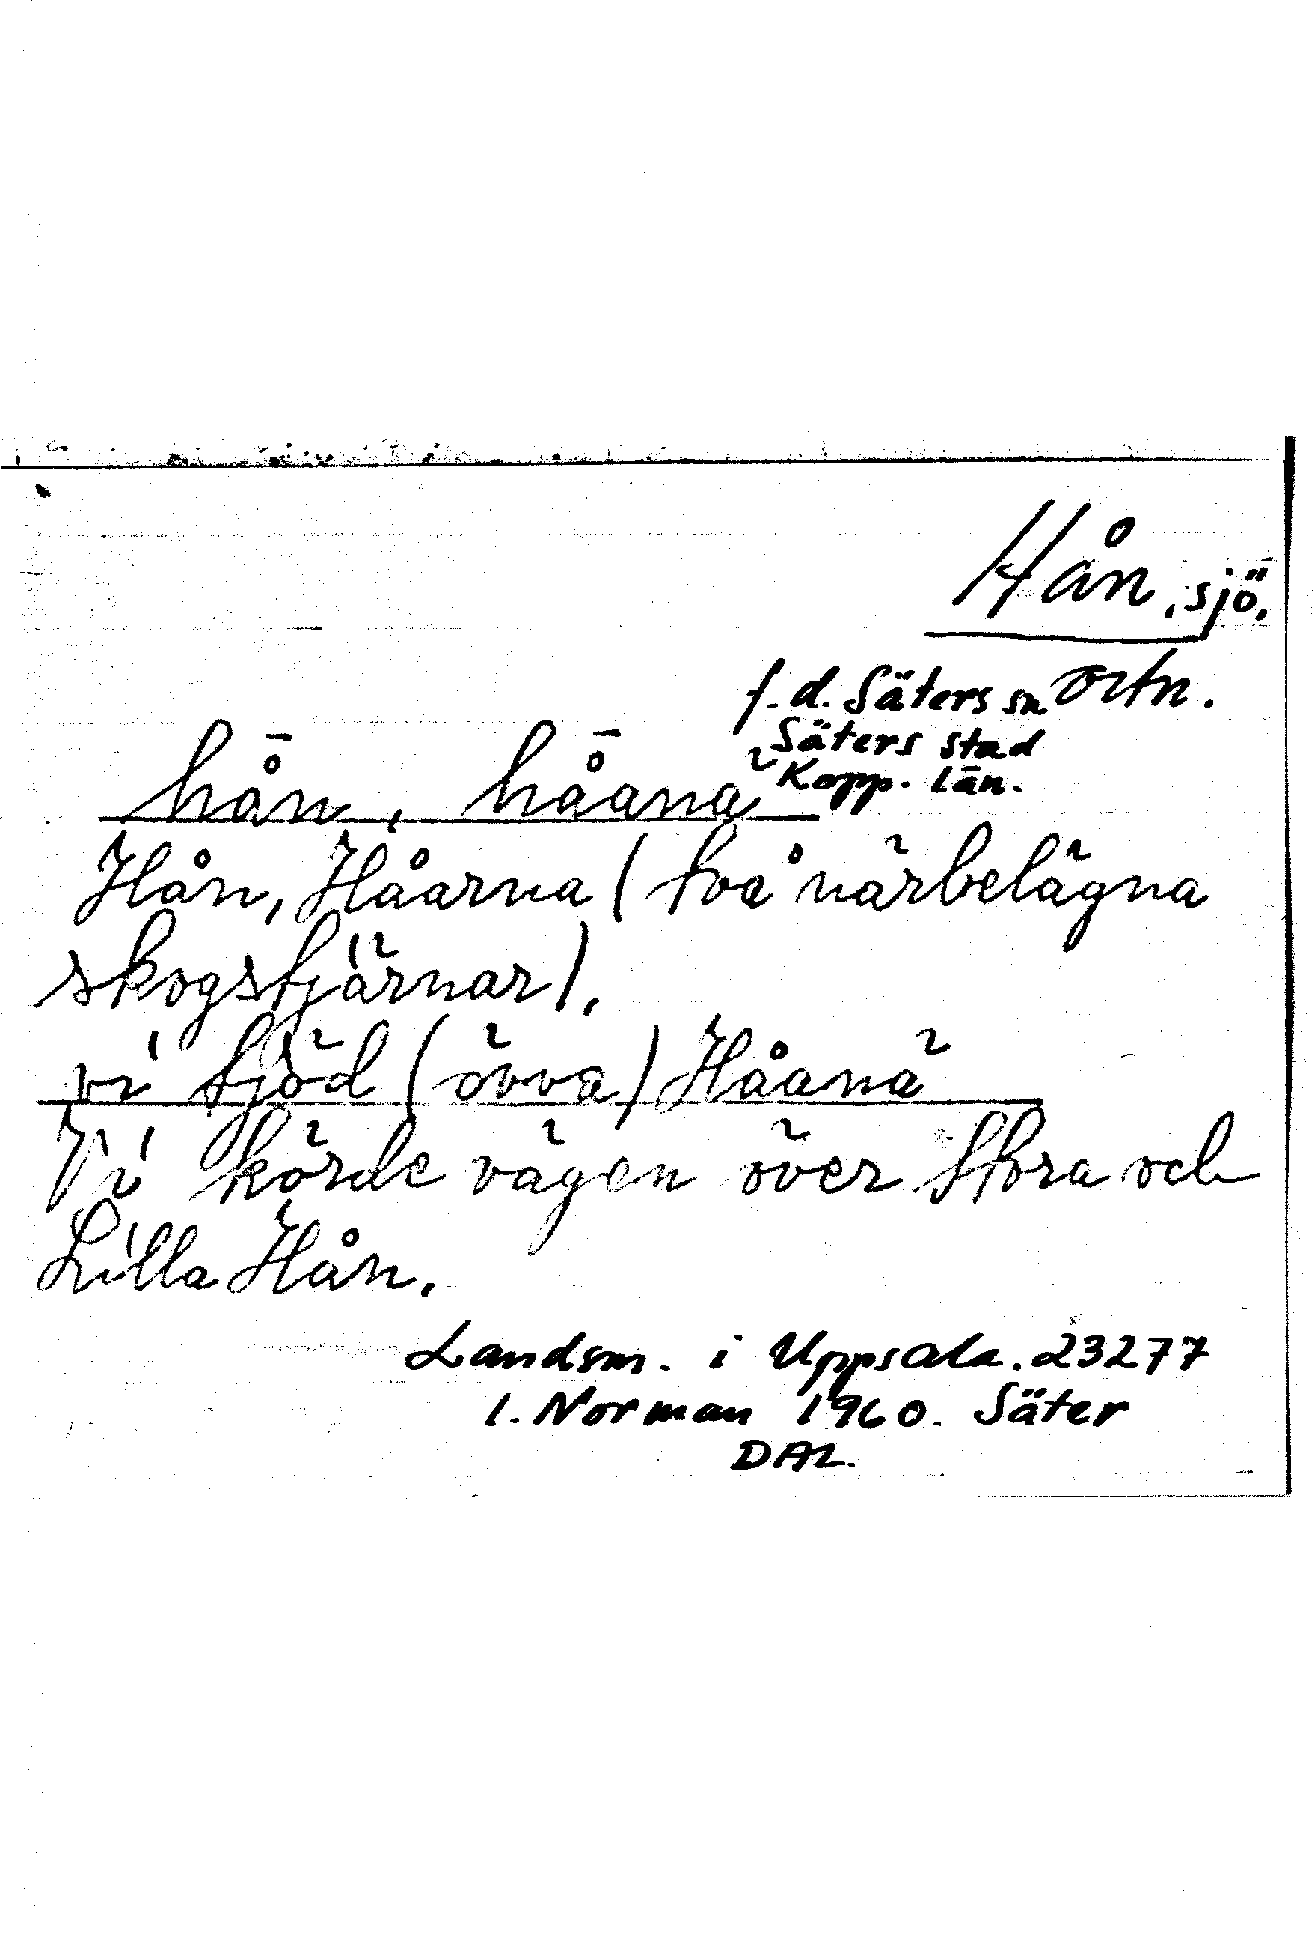 Hån, sjö.
f.d. Säters sn Ortn.
Säters stad
Kopp. län.
hå̄n, hå̄anä
Hån, Håarna (två närbelägna
skogstjärnar).
vi tjöd (övva) Håanä
Vi körde vägen över Stora och
Lilla Hån.
Landsm. i Uppsala. 23277
I. Norman 1960. Säter
DAL.